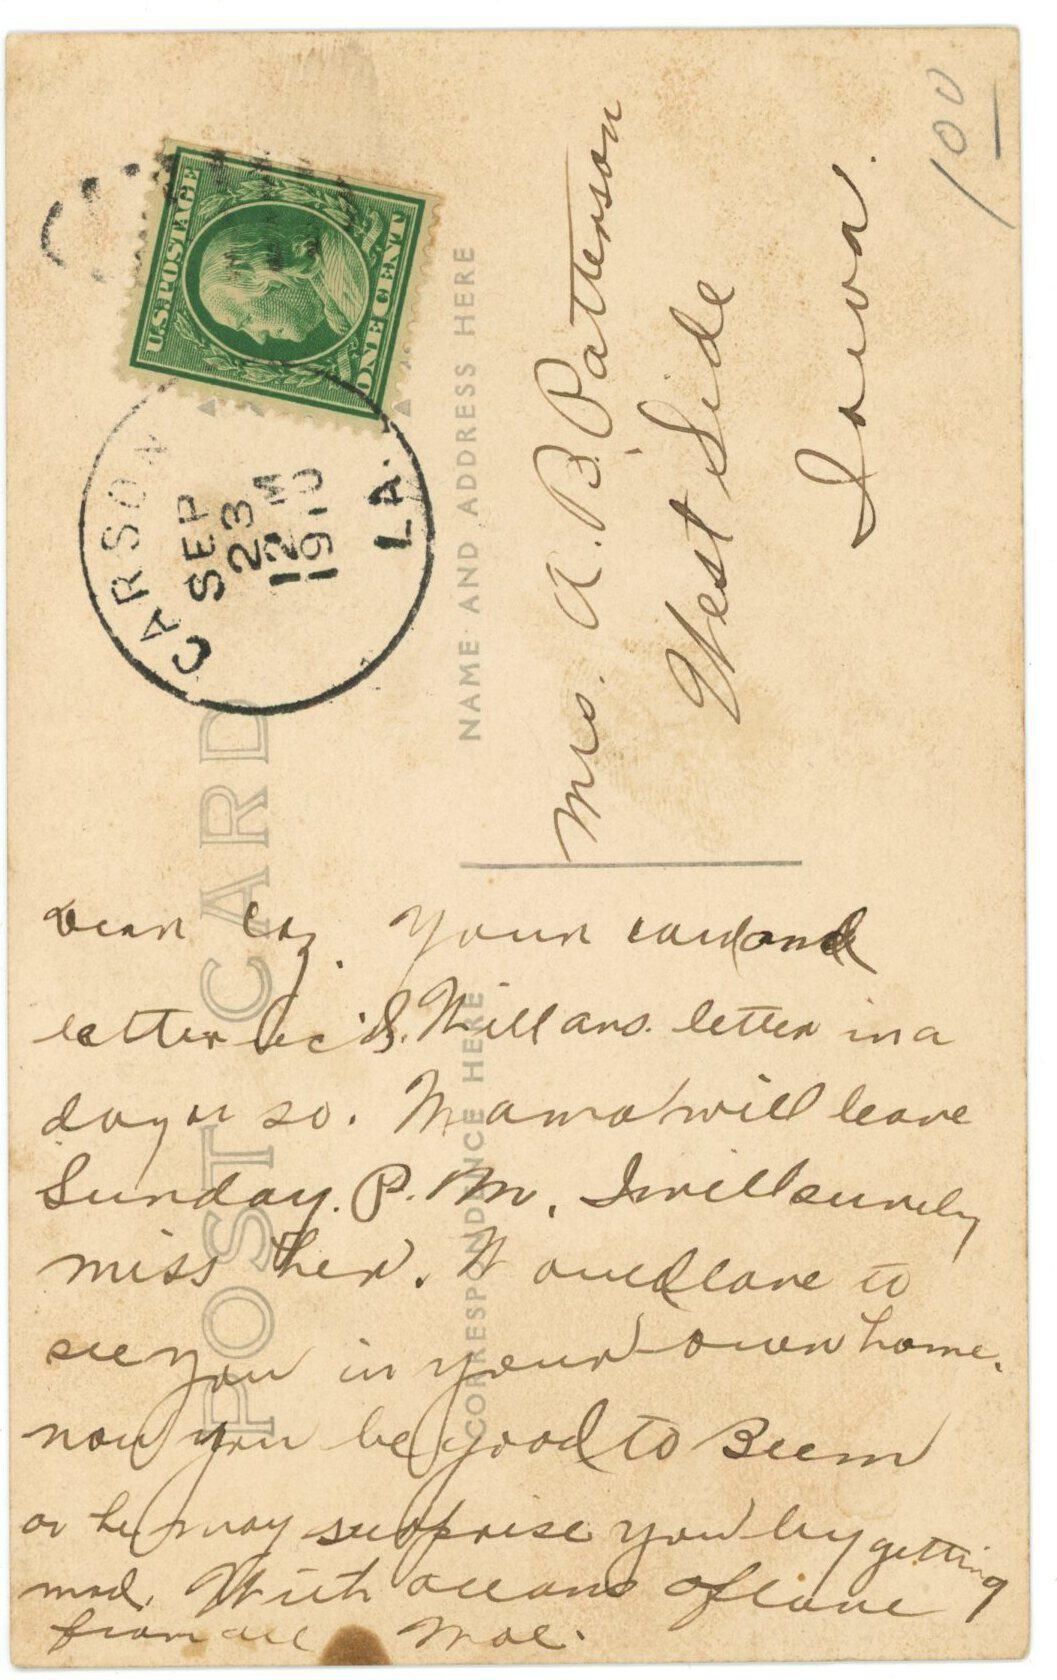 100
U.S. POSTAGE
ONE CENT
CARSON
LA.
SEP
23
12 M
1910
POST CARD
NAME AND ADDRESS HERE
CORRESPONDENCE HERE
Mrs. A. B. Patterson
West Side
Iowa.
Dear Your card and
letter rec'd. Will ans. letter in a
day or so. Mama will leave
Sunday. P. M. I will surely
miss her. Would love to
see you in your own home.
now you be good to Beem
or he may surprise you by getting
mad. With oceans of love
from all Mae.